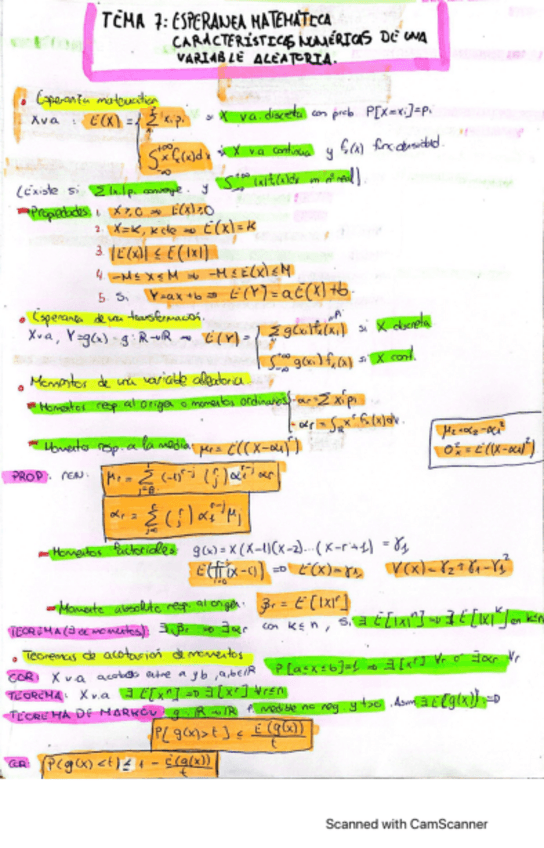 TEMA 7: ESPERANZA MATEMÁTICA
CARACTERÍSTICAS NUMÉRICAS DE UNA
VARIABLE ALEATORIA.
• Esperanza matemática
X v.a : E(X) = { Σ xᵢ pᵢ si X v.a. discreta con prob P[X=xᵢ]=pᵢ
∫_{-∞}^{+∞} x f(x)dx si X v.a continua y fₓ(x) func. densidad.
(Existe si Σ|xᵢ|pᵢ converge y ∫_{-∞}^{+∞} |x|f(x)dx
Propiedades 1. X≥0 ⇒ E(X)≥0
2. X=K, K cte ⇒ E(X)=K
3. |E(X)| ≤ E(|X|)
4. -M≤X≤M ⇒ -M≤E(X)≤M
5. Si Y=aX+b ⇒ E(Y)=aE(X)+b
• Esperanza de una transformación.
X v.a, Y=g(x) g: R→R ⇒ E(Y) = { Σ g(xᵢ) si X discreta
∫_{-∞}^{+∞} g(x) fₓ(x) si X cont.
• Momentos de una variable aleatoria.
Momentos resp. al origen o momentos ordinarios { αr = Σ xʳ pᵢ
αr = ∫_R xʳ fₓ(x)dx
Momento resp. a la media μr = E((X-α₁)ʳ)
μ₂=α₂-α₁²
σₓ² = E((X-α₁)²)
PROP. r∈N: μr = Σ (-1)^{r-j} (r j) α₁^{r-j} αr
αr = Σ_{j=0}^{r} (r j) α₁^{r-j} μj
Momentos factoriales g(x) = X(X-1)(X-2)...(X-r+1) = γ₁
⇒ E(X)=γ₁ V(X)=γ₂+γ₁-γ₁²
Momento absoluto resp. al origen. βr = E[|X|ʳ]
TEOREMA (∃ de momentos) ∃ βr ⇒ ∃ αr con k≤n, Si ∃ E[|X|ⁿ] ⇒ ∃ E[|X|ᵏ] con k≤n
• Teoremas de acotación de momentos
COR: X v.a acotada entre a y b, a,b∈R P[a≤X≤b]=1 ⇒ ∃ [Xʳ] ∀r o ∃ αr ∀r
TEOREMA: X v.a ∃ E[Xⁿ] ⇒ ∃ [Xʳ] ∀r≤n
TEOREMA DE MARKOV g: R→R f. medible no neg. y t>0. ∃ E(g(x)) ⇒
P[g(x)>t] ≤ E(g(x))/t
COR P(g(x)<t) ≤ 1 - E(g(x))/t
Scanned with CamScanner